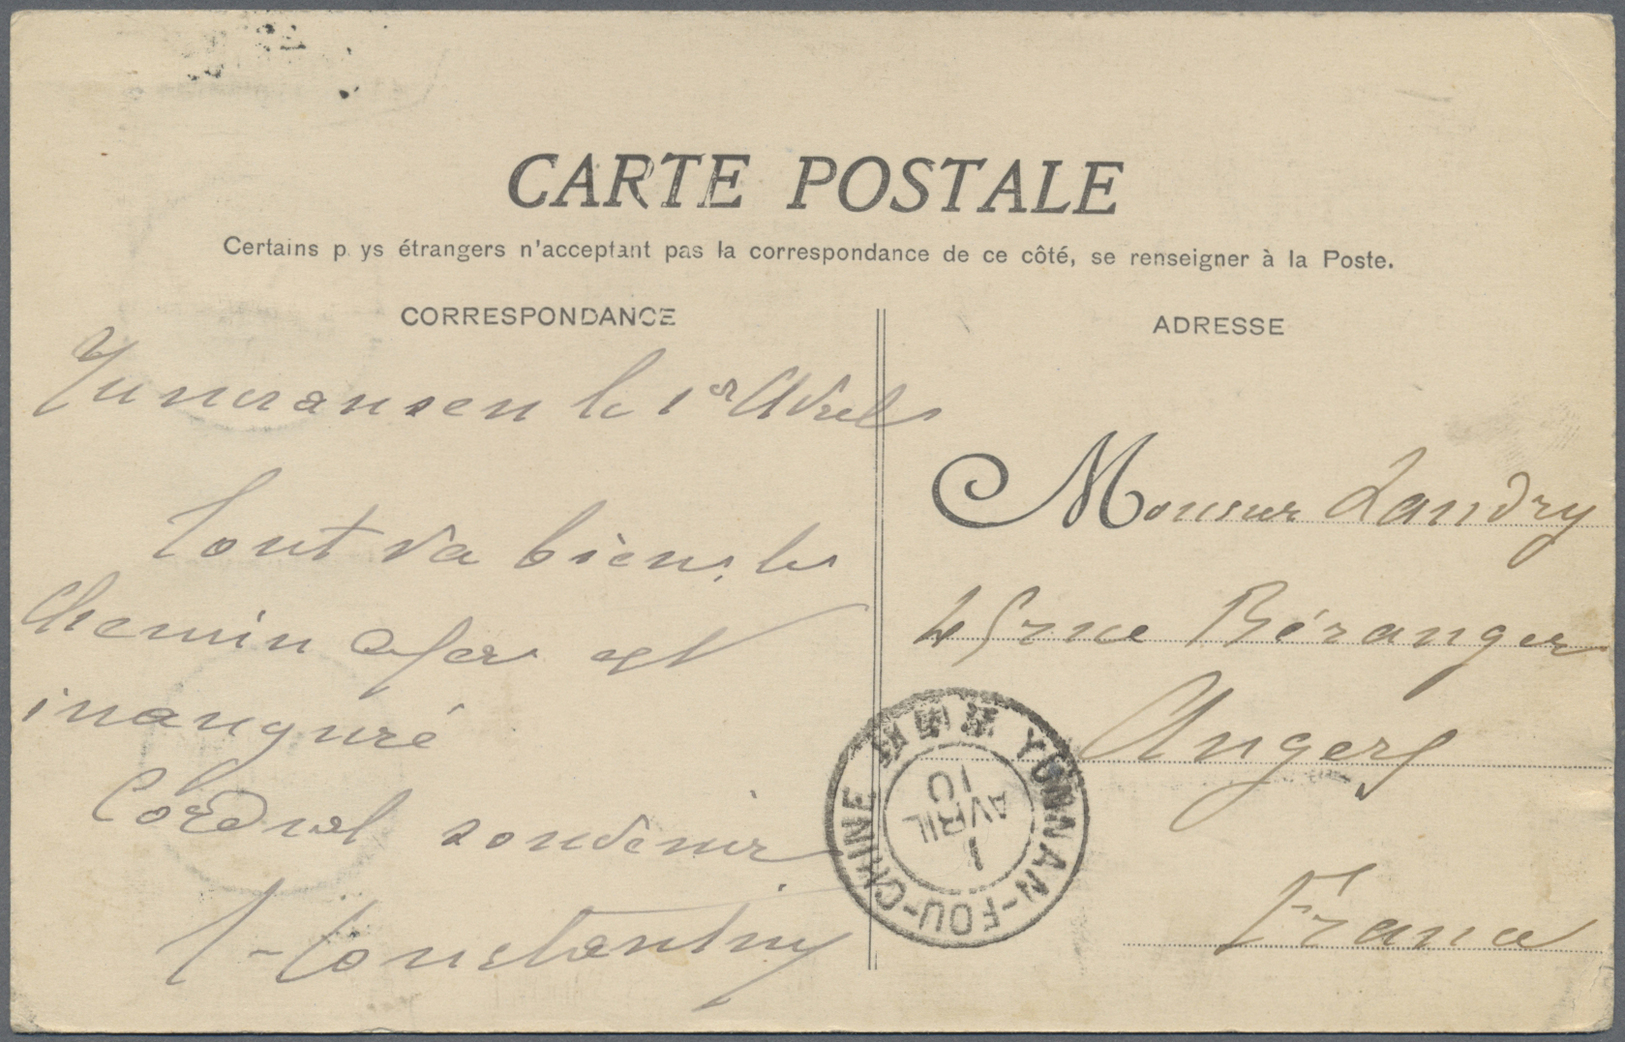 CARTE POSTALE
Certains p ys étrangers n'acceptant pas la correspondance de ce côté, se renseigner à la Poste.
CORRESPONDANCE
Yunnansen le 1er Avril
Tout va bien, le
Chemin de fer est
inauguré
Cordial souvenir
Constantiny
ADRESSE
Monsieur Landry
45 rue Béranger
Angers
France
YUNNAN-FOU-CHINE
1
AVRIL
10